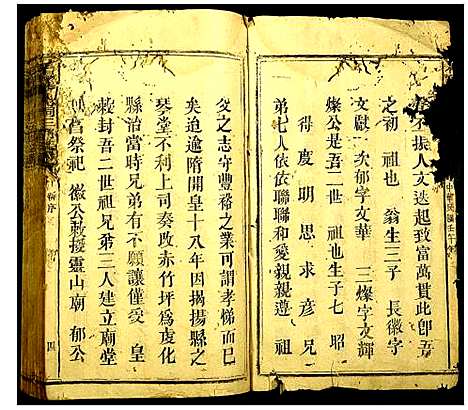 不振人文迭起致富萬貫此卽吾
之初　祖也　翁生三子　長徽字
文獻　次郁字文華　三燦字文輝
燦公是吾二世　祖也生子七　昭
得度明思求彥兄
弟七人依依聯聯和愛親親遵　祖
父之志守豐裕之業可謂孝悌而已
矣迨逾隋開皇十八年因揭揚縣之
琴堂不利上司奏改赤竹坪爲虔化
縣治當時兄弟有不願讓僅受　皇
敕封吾二世祖兄弟三人建立廟堂
昌祭祀　徽公敕援靈山廟　郁公
四